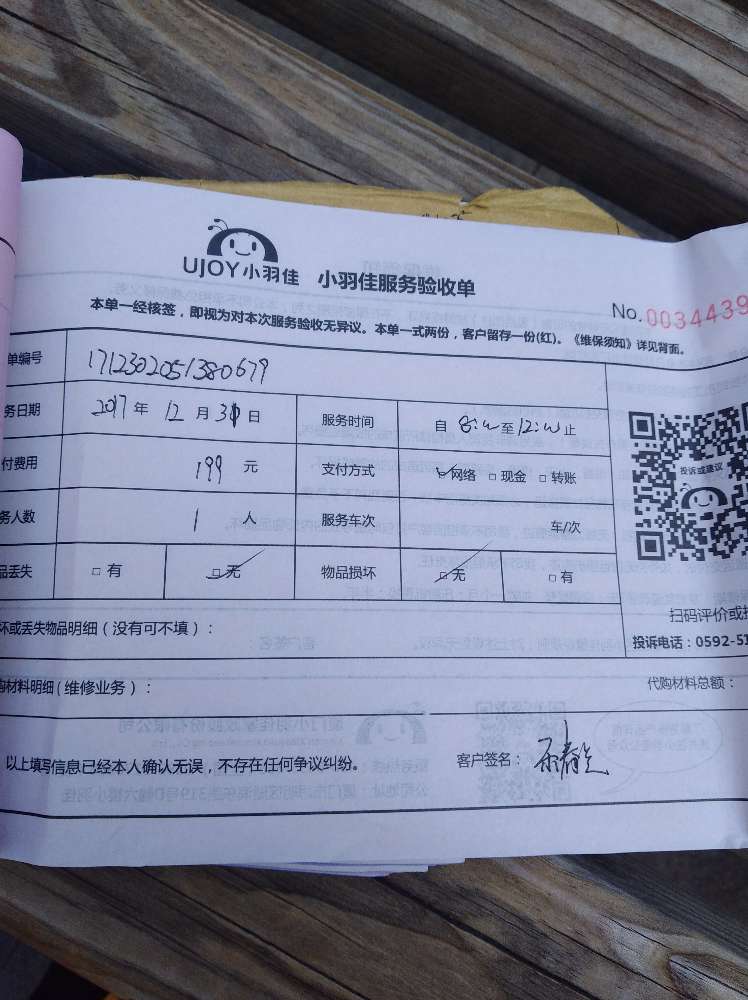 UJOY小羽佳 小羽佳服务验收单
No.0034439
本单一经核签，即视为对本次服务验收无异议。本单一式两份，客户留存一份(红)。《维保须知》详见背面。
单编号 1712302051380679
务日期 2017年 12月 31日 服务时间 自 8:00 至 12:00 止
付费用 199 元 支付方式 ☑网络 □现金 □转账
务人数 1 人 服务车次 车/次
品丢失 □有 ☑无 物品损坏 ☑无 □有
投诉或建议
扫码评价或投
坏或丢失物品明细（没有可不填）：
投诉电话：0592-51
购材料明细（维修业务）：
代购材料总额：
以上填写信息已经本人确认无误，不存在任何争议纠纷。
客户签名：